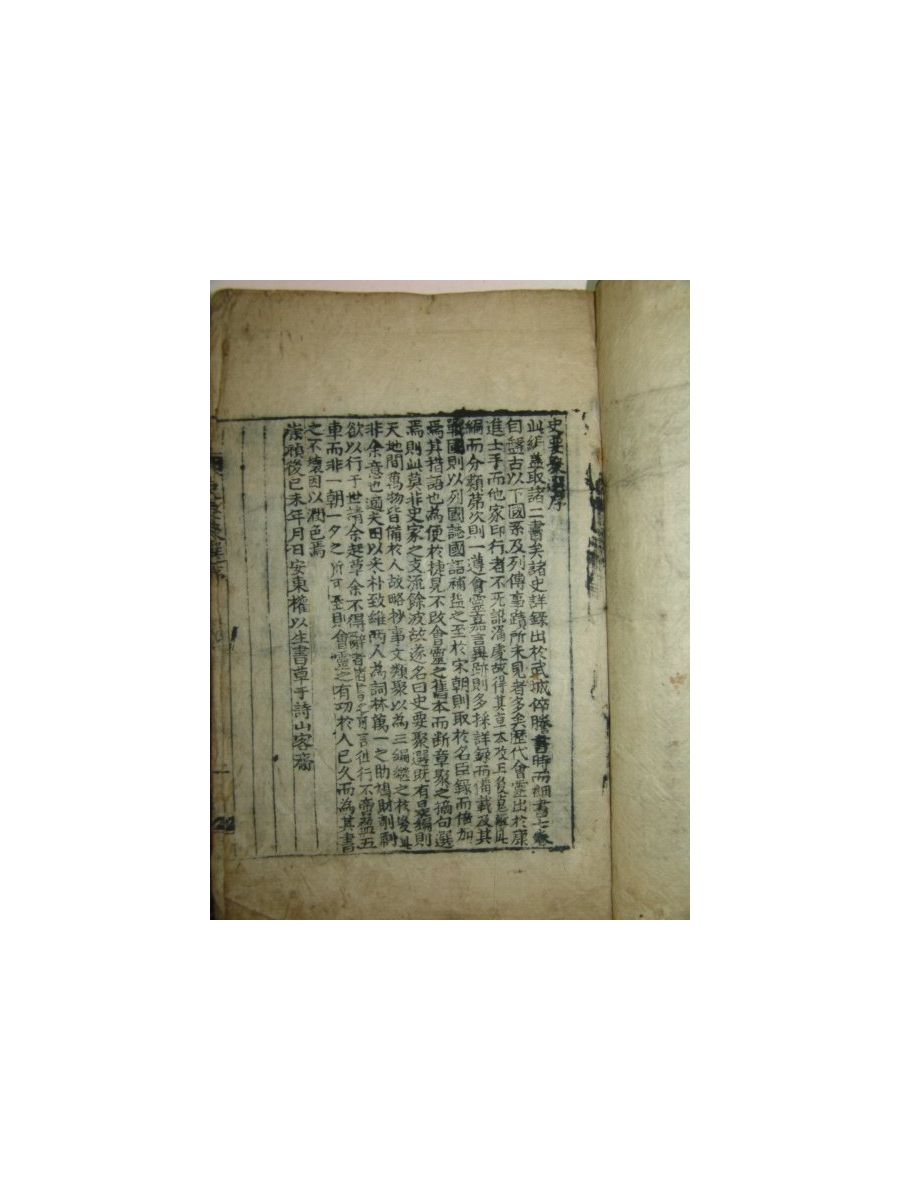 史要聚選序
此編盖取諸二書矣諸史詳錄出於武城倅勝書時而細書七卷
自盤古以下國系及列傳事蹟所未見者多矣歷代會靈出於康
進士手而他家印行者不无訛漏處故得其草本改正後
綱而分類第次則一遵會靈嘉言異跡則多採詳錄而備載及其
戰國則以列國誌國語補益之至於宋朝則取於名臣錄而倍加
焉其措語也為便於捷見不改會靈之舊本而断章聚之摘句選
焉則此莫非史家之支流餘波故遂名曰史要聚選既有是編則
天地間萬物皆備於人故略抄事文類聚以為三編繼之於後此
非余意也適夫田以采朴致維兩人為詞林萬一之助鳩財剞劂
欲以行于世請余起草余不得辭者 言徃行不啻盈五
車而非一朝一夕之所可至則會靈之有功於人已久而為其書
之不壞因以潤色焉
崇禎後己未年月日安東權以生書草于詩山客齋
史要聚選序
一